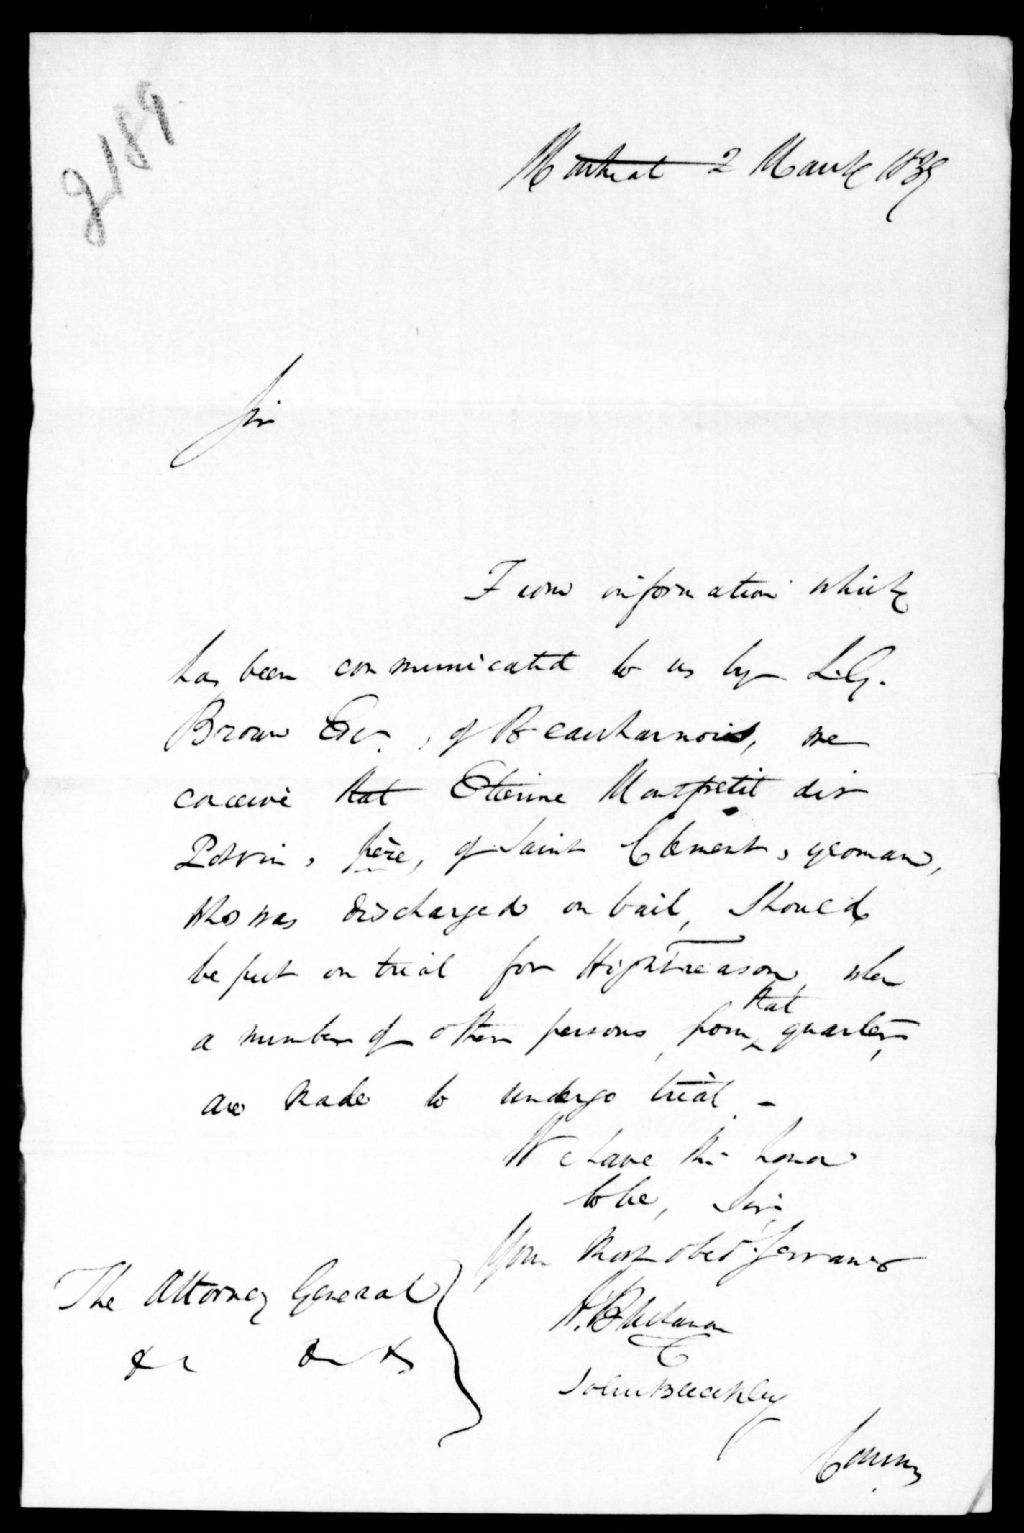 2189
Montreal 2 March 1839
Sir
From information which
has been communicated to us by L.G.
Brown Esqr., of Beauharnois, we
conceive that Etienne Montpetit dit
Potvin, père, of Saint Clement, yeoman,
who was discharged on bail, should
be put on trial for High Treason, when
a number of other persons, from that quarter,
are made to undergo trial. -
We have the honor
to be, Sir,
Your most obedt Servants
The Attorney General
&c &c &c
John Bleakley
Commrs